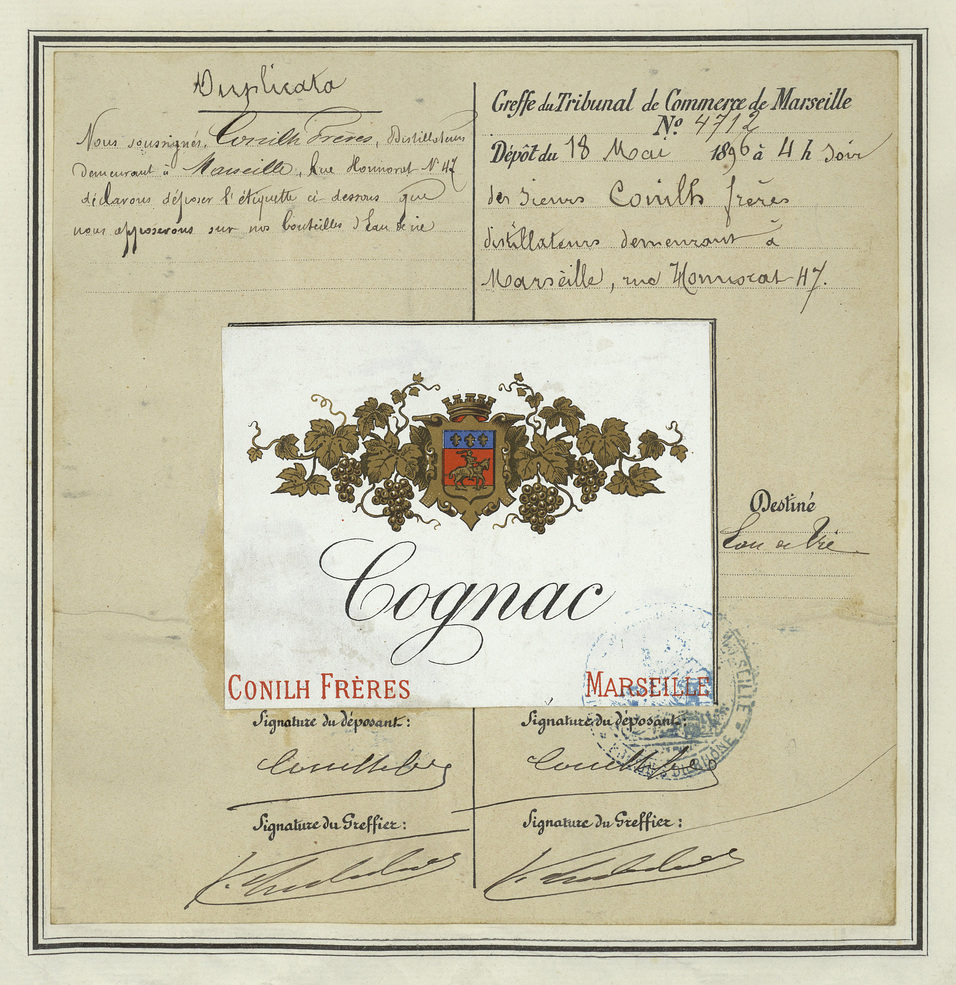 Duplicata
Nous soussignés, Conilh Frères, Distillateurs
demeurant à Marseille, Rue Honnorat N° 47
déclarons déposer l'étiquette ci dessous que
nous apposerons sur nos bouteilles d'Eau de vie
Greffe du Tribunal de Commerce de Marseille
N° 4712
Dépôt du 18 Mai 1896 à 4 h Soir
des sieurs Conilh frères
distillateurs demeurant à
Marseille, rue Honnorat 47.
Cognac
CONILH FRÈRES
MARSEILLE
Destiné
Eau de Vie
Signature du déposant:
Signature du déposant:
Conilh
Conilh
Signature du Greffier:
Signature du Greffier:
MARSEILLE
BOUCHES DU RHÔNE